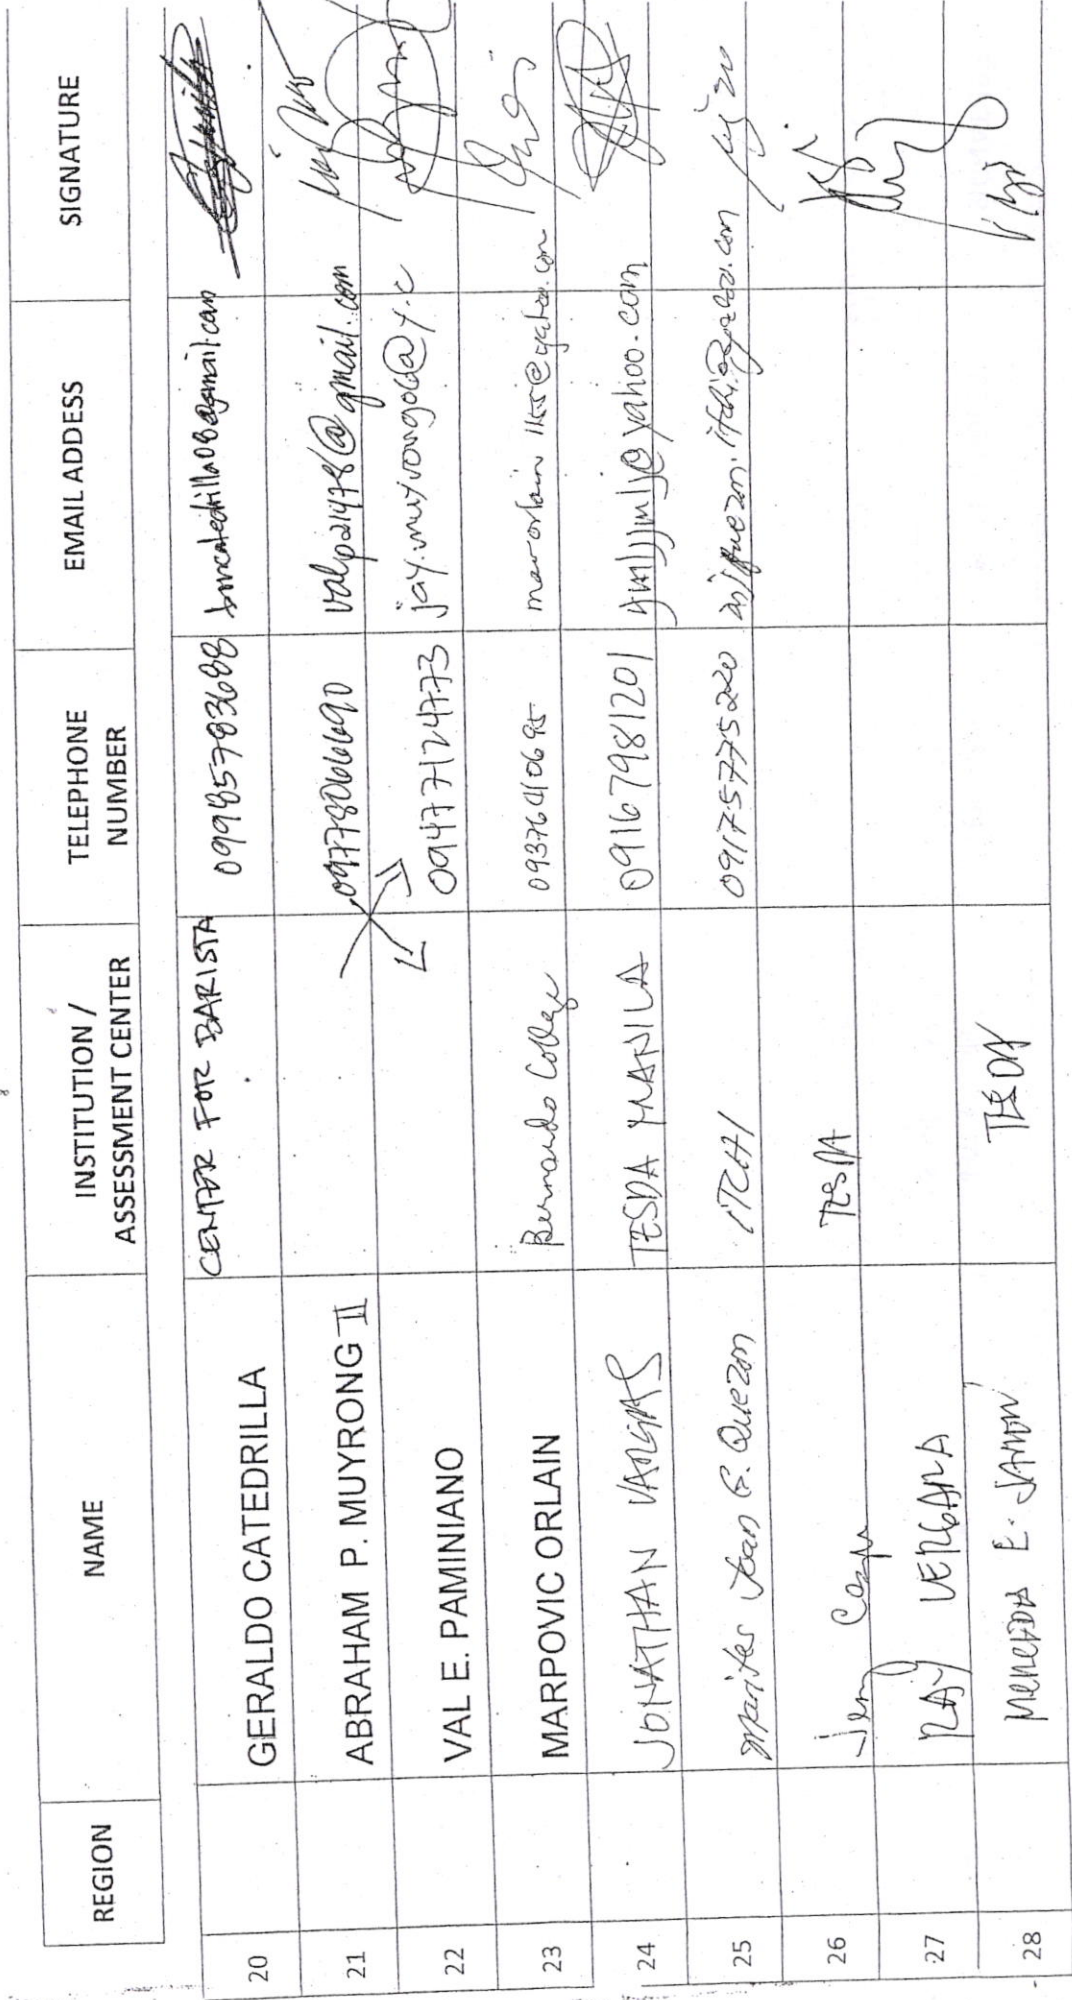 REGION NAME INSTITUTION / ASSESSMENT CENTER TELEPHONE NUMBER EMAIL ADDESS SIGNATURE
20 GERALDO CATEDRILLA CENTER FOR BARISTA 09985783688
21 ABRAHAM P. MUYRONG II 09778066690 valp21478@gmail.com
22 VAL E. PAMINIANO 09477124773 jay.muyrong06@y.c
23 MARPOVIC ORLAIN Bernardo College 09376410695
24 JONATHAN VARGAS TESDA MANILA 09167981201 ymljjmlj@yahoo.com
25 Marites Joan G. Quezon ITCHI 09175775220
26 Jerry TESDA
27 RAY VERGARA
28 E. TESDA